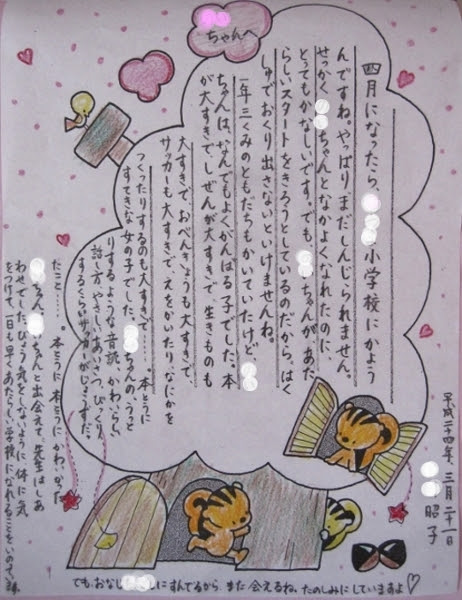 ちゃんへ
四月になったら、小学校にかよう
んですね。やっぱりまだしんじられません。
せっかくちゃんとなかよくなれたのに、
とってもかなしいです。でも、ちゃんが、あた
らしいスタートをきろうとしているのだから、はく
しゅでおくり出さないといけませんね。
一年三くみのともだちもかいていたけど、
ちゃんは、なんでもよくがんばる子でした。本
が大すきで、しぜんが大すきで、生きものも
大すきで、おべんきょうも大すきで、
サッカーも大すきで、えをかいたり、なにかを
つくったりするのも大すきで……。本とうに
すてきな女の子でした。ちゃんの、うっと
りするような音読、かわいらしい
話し方、やさしいあいさつ、びっくり
するくらいサッカーがじょうずだっ
たこと……。本とうに本とうにかわいかった
ちゃん。ちゃんと出会えて、先生はしあ
わせでした。びょう気をしないように、体に気
をつけて、一日も早くあたらしい学校になれることをいのっています。
平成二十四年、三月二十一日
昭子
でも、おなじにすんでるから、また会えるね。たのしみにしていますよ♡